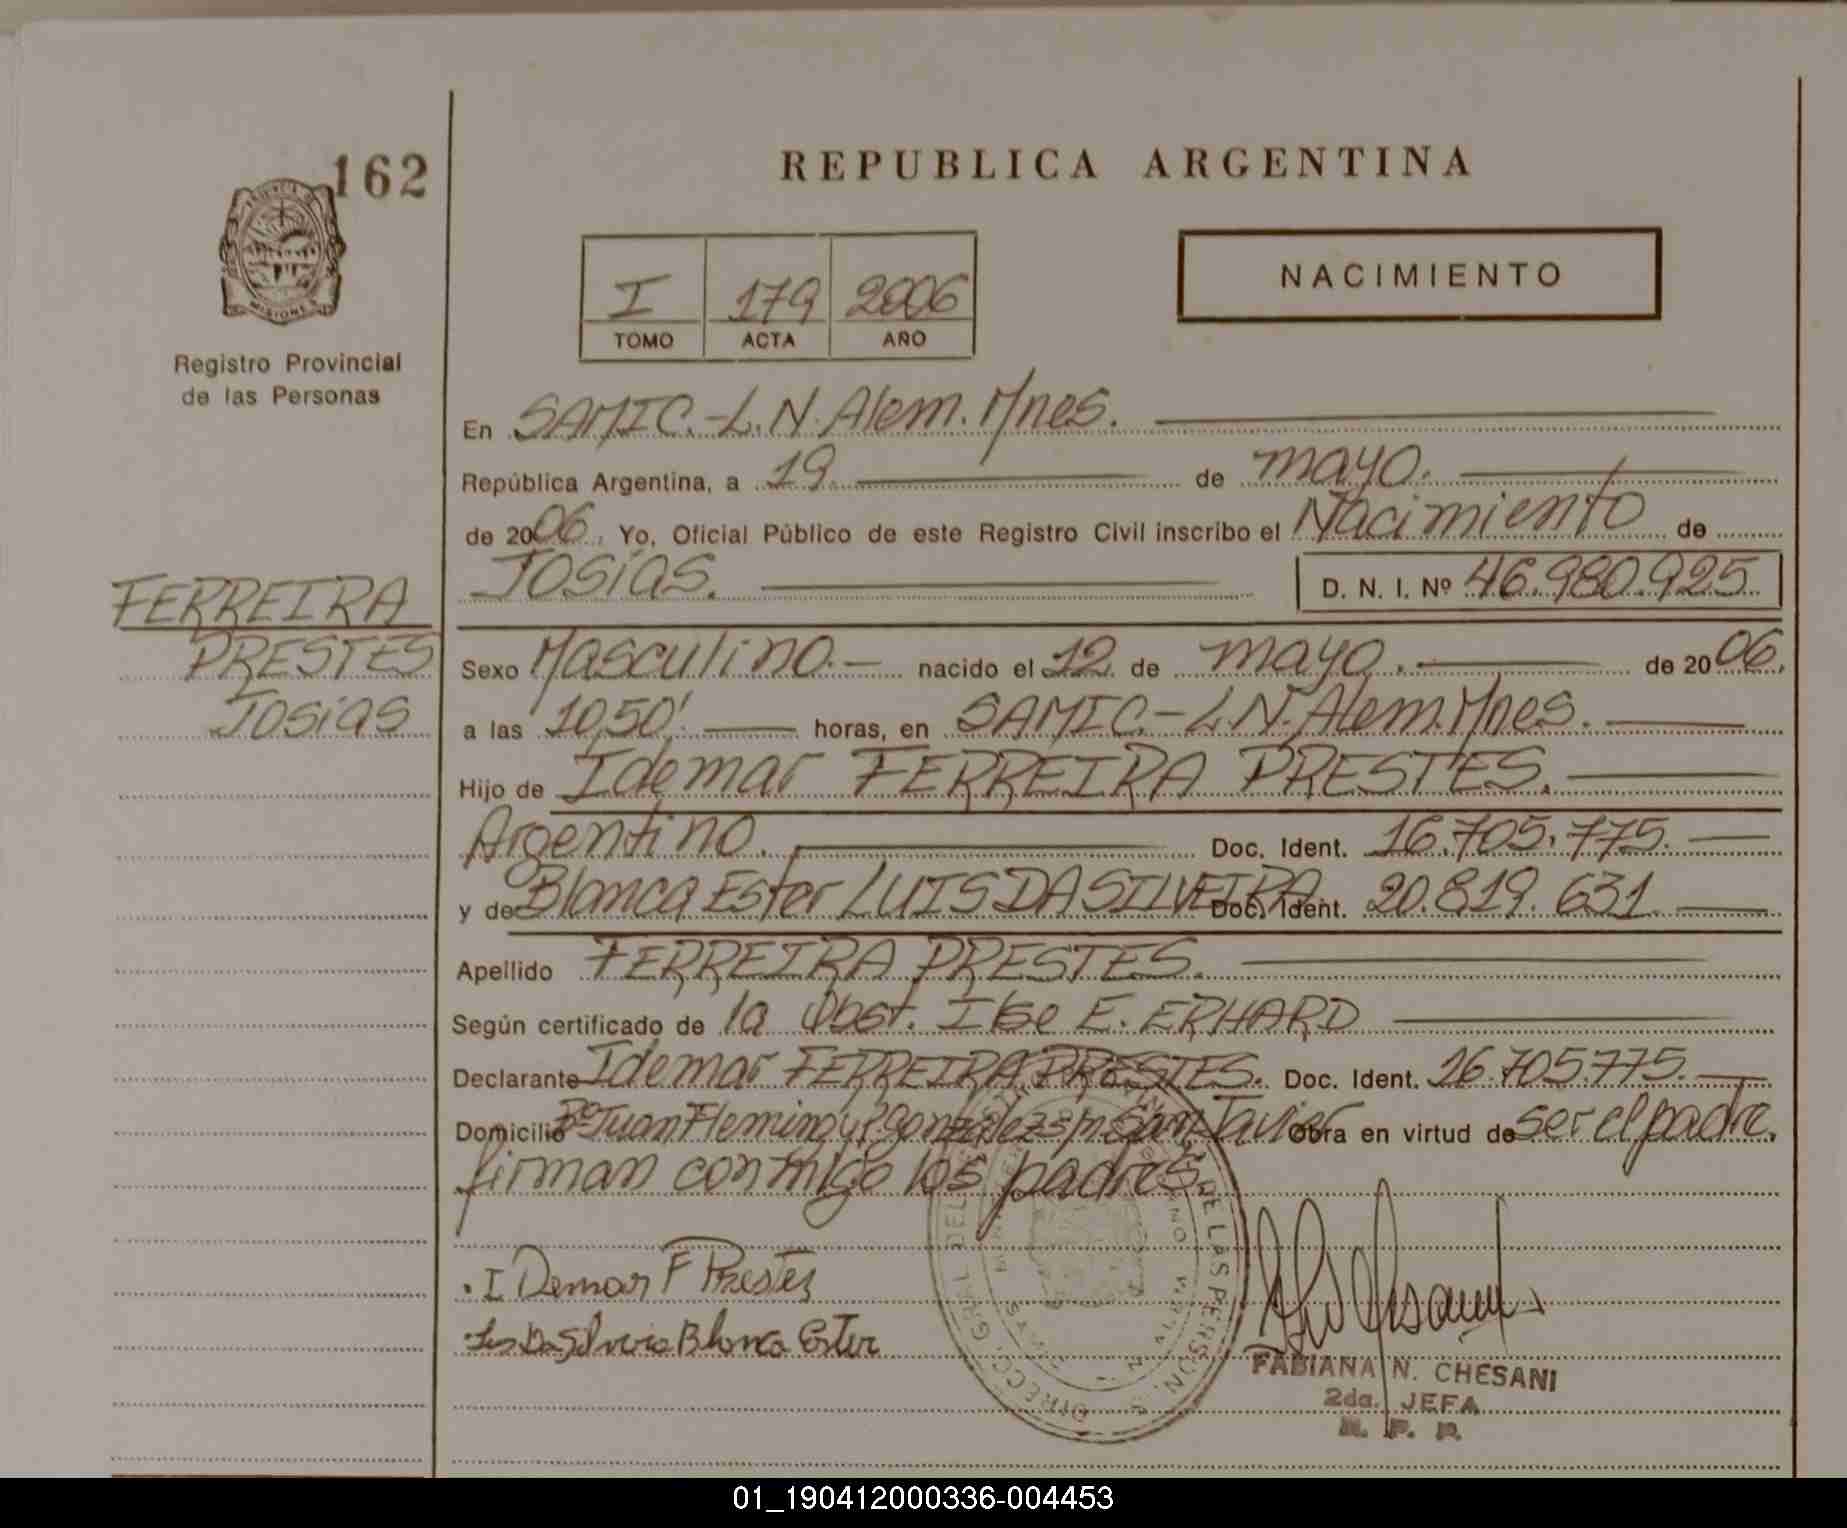 162
REPUBLICA ARGENTINA
PROVINCIA DE
MISIONES
Registro Provincial
de las Personas
I 179 2006
TOMO ACTA AÑO
NACIMIENTO
En SAMIC.-L.N.Alem.Mnes.
República Argentina, a 19 de mayo.
de 2006. Yo, Oficial Público de este Registro Civil inscribo el Nacimiento de
Josías. D. N. I. Nº 46.980.925.
FERREIRA
PRESTES
Josías
Sexo Masculino.- nacido el 12 de mayo. de 2006.
a las 10,50' horas, en SAMIC-L.N.Alem.Mnes.
Hijo de Idemar FERREIRA PRESTES.
Argentino. Doc. Ident. 16.705.775.
y de Blanca Ester LUIS DA SILVEIRA. Doc. Ident. 20.819.631.
Apellido FERREIRA PRESTES.
Según certificado de la Obst. Ilse E. ERHARD
Declarante Idemar FERREIRA PRESTES. Doc. Ident. 16.705.775.
Domicilio Bº Juan Fleming y P. gonzalez s/n San Javier Obra en virtud de ser el padre.
firman conmigo los padres.
I Demar F Prestes
Da Silveira Blanca Ester
DIRECC. GRAL. DEL DE LAS PERSON.
FABIANA N. CHESANI
2da. JEFA
R. P. P.
01_190412000336-004453